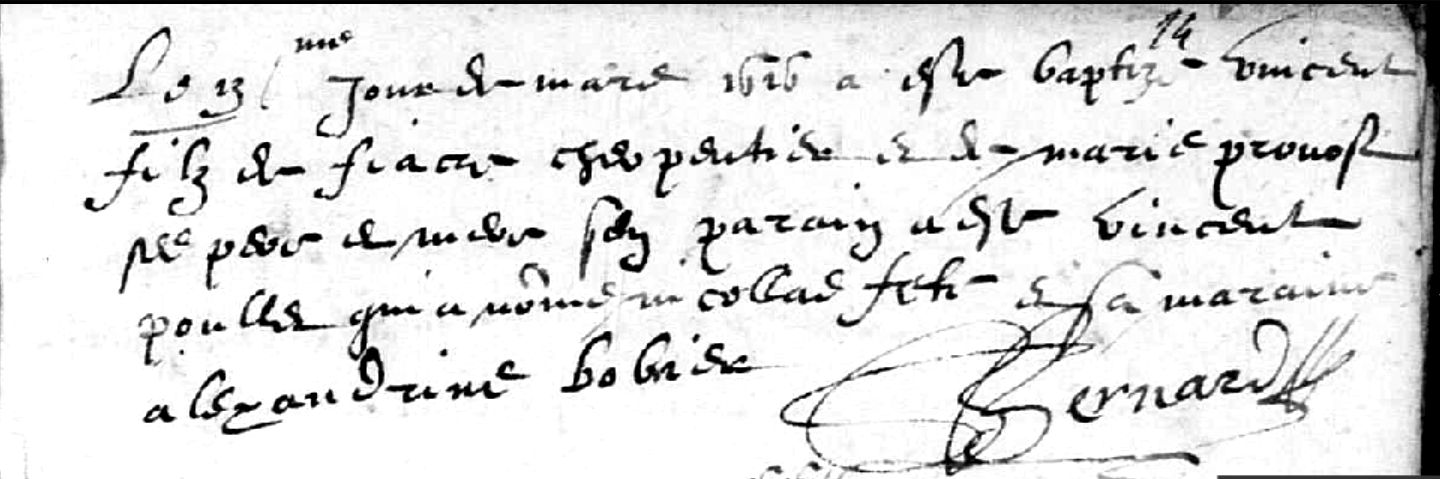 14
Le 13 me Jour de mars 1616 a este baptize vincent
filz de fiacre cherpentier et de marie prouost
ses pere et mere son parain a este vincent
poullet qui a nōme nicollas et sa maraine
alexandrine bobrier Bernard